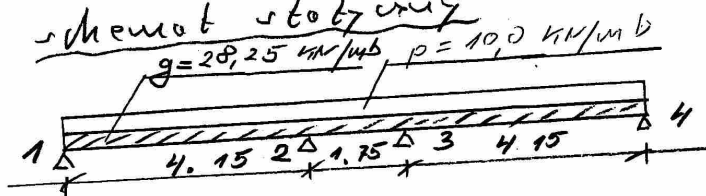 schemat statyczny
g=28,25 KN/mb p=10,0 KN/mb
1 4.15 2 1.75 3 4.15 4